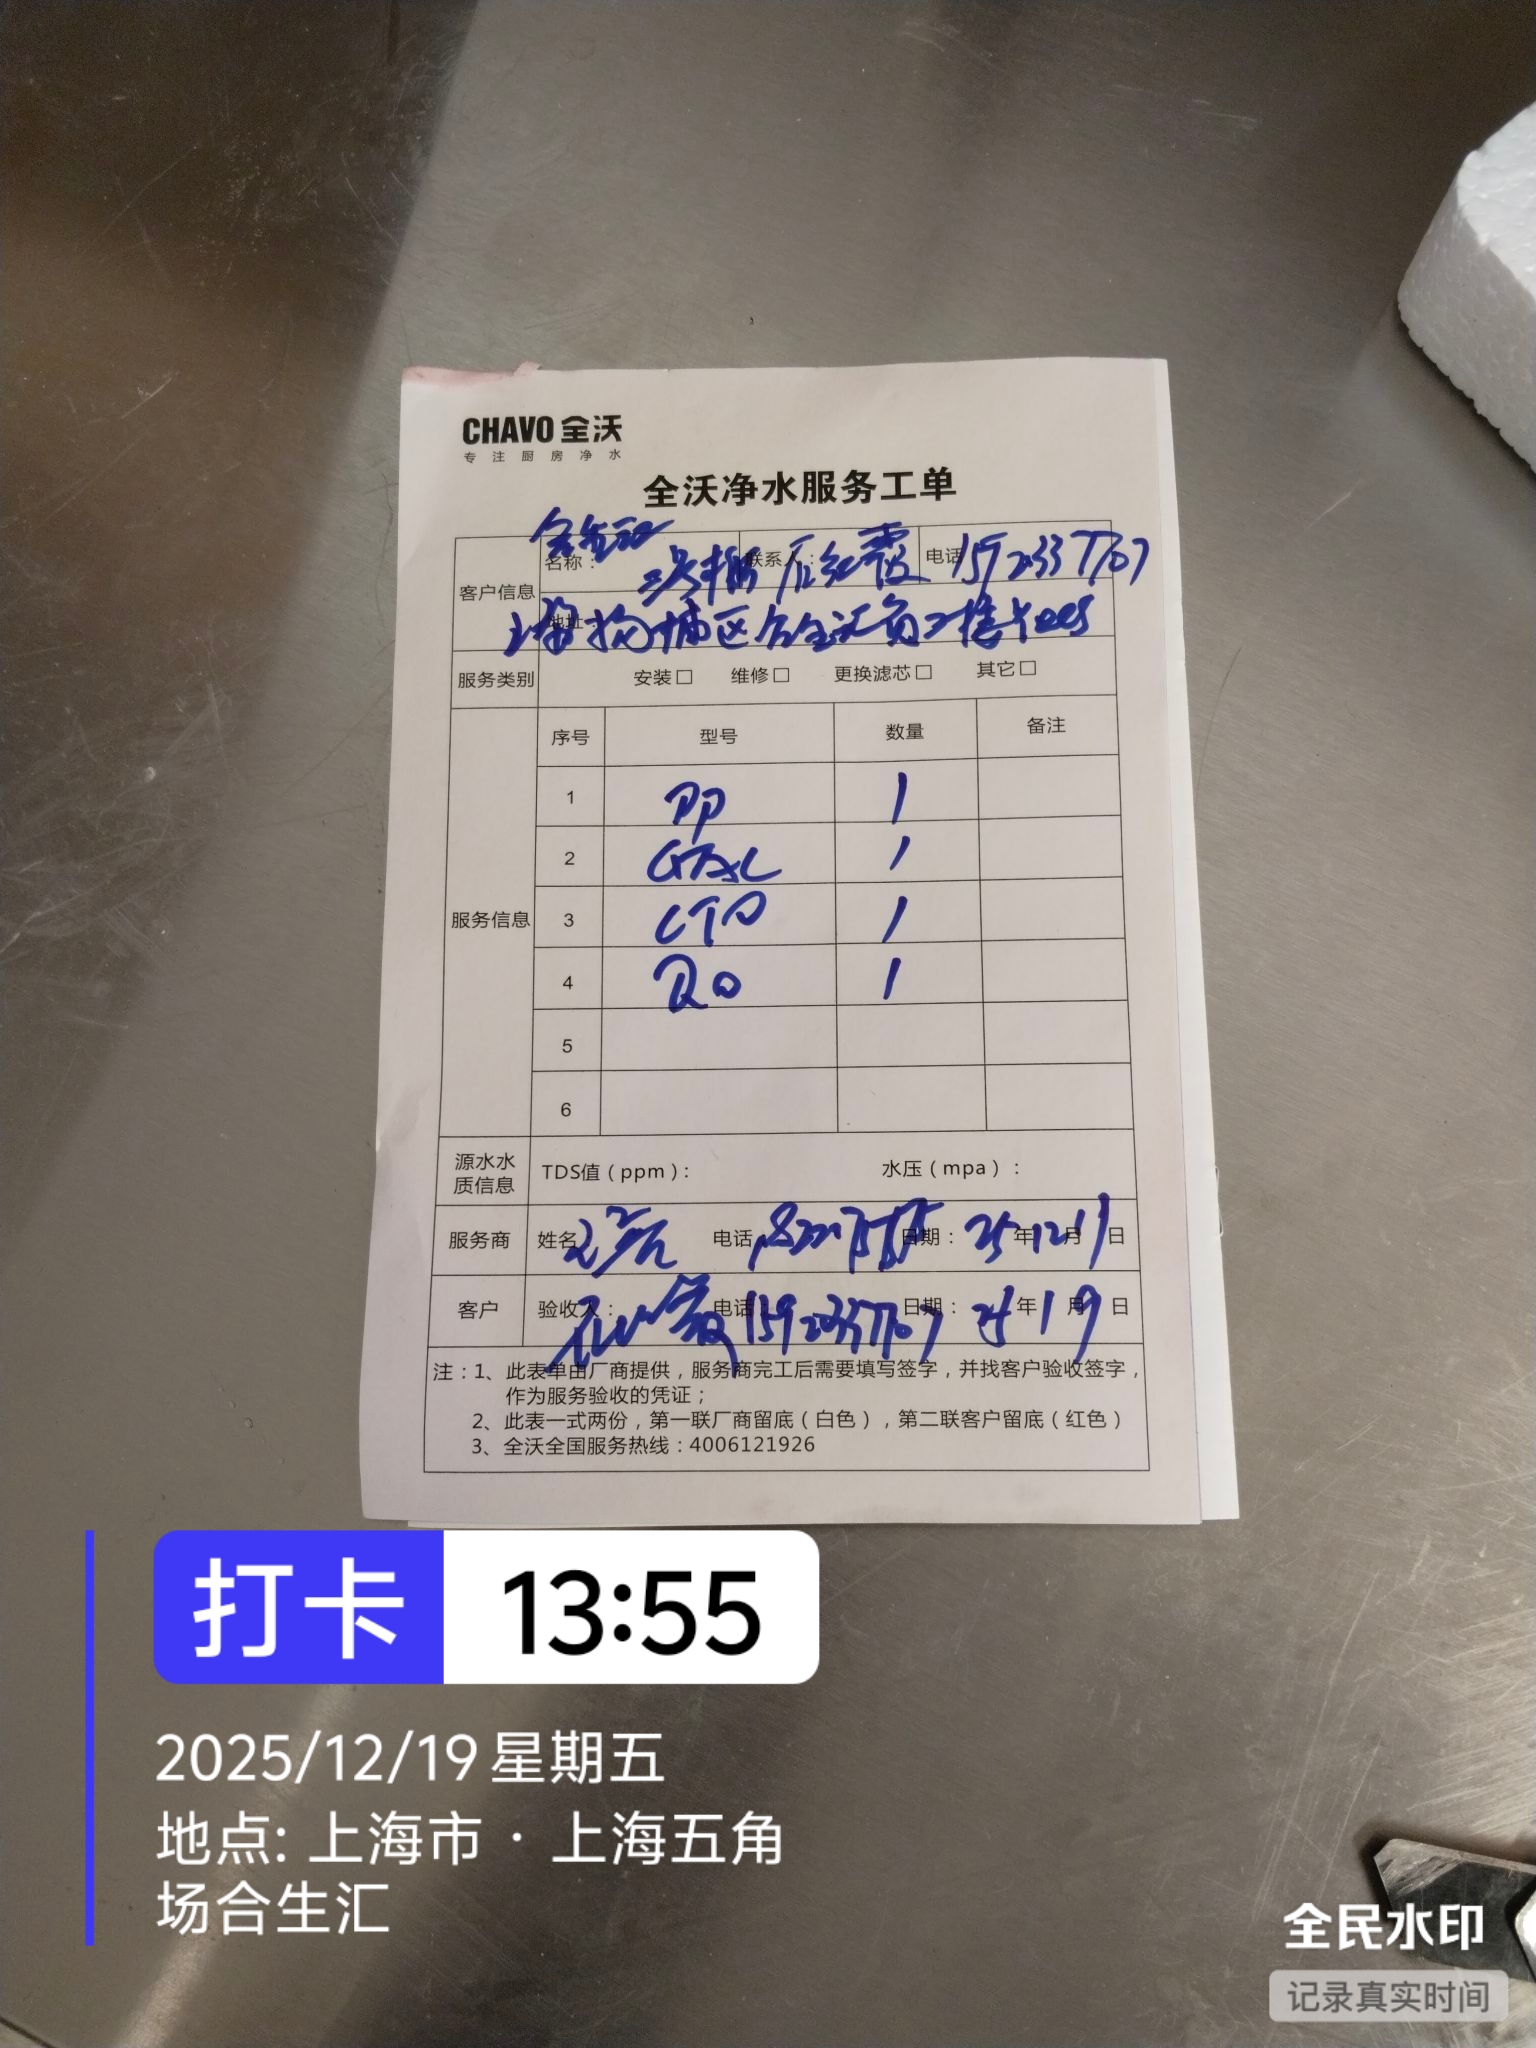 CHAVO 全沃
专注厨房净水
全沃净水服务工单
合生汇
客户信息 名称： 联系人： 电话 15920337707
地址：
服务类别 安装□ 维修□ 更换滤芯□ 其它□
服务信息 序号 型号 数量 备注
1 PP 1
2 1
3 CTO 1
4 RO 1
5
6
源水水质信息 TDS值（ppm）： 水压（mpa）：
服务商 姓名 电话 日期： 25年12月 日
客户 验收人： 电话： 15920337707 日期： 年 月 日
注：1、此表单由厂商提供，服务商完工后需要填写签字，并找客户验收签字，
作为服务验收的凭证；
2、此表一式两份，第一联厂商留底（白色），第二联客户留底（红色）
3、全沃全国服务热线：4006121926
打卡 13:55
2025/12/19 星期五
地点: 上海市·上海五角
场合生汇
全民水印
记录真实时间